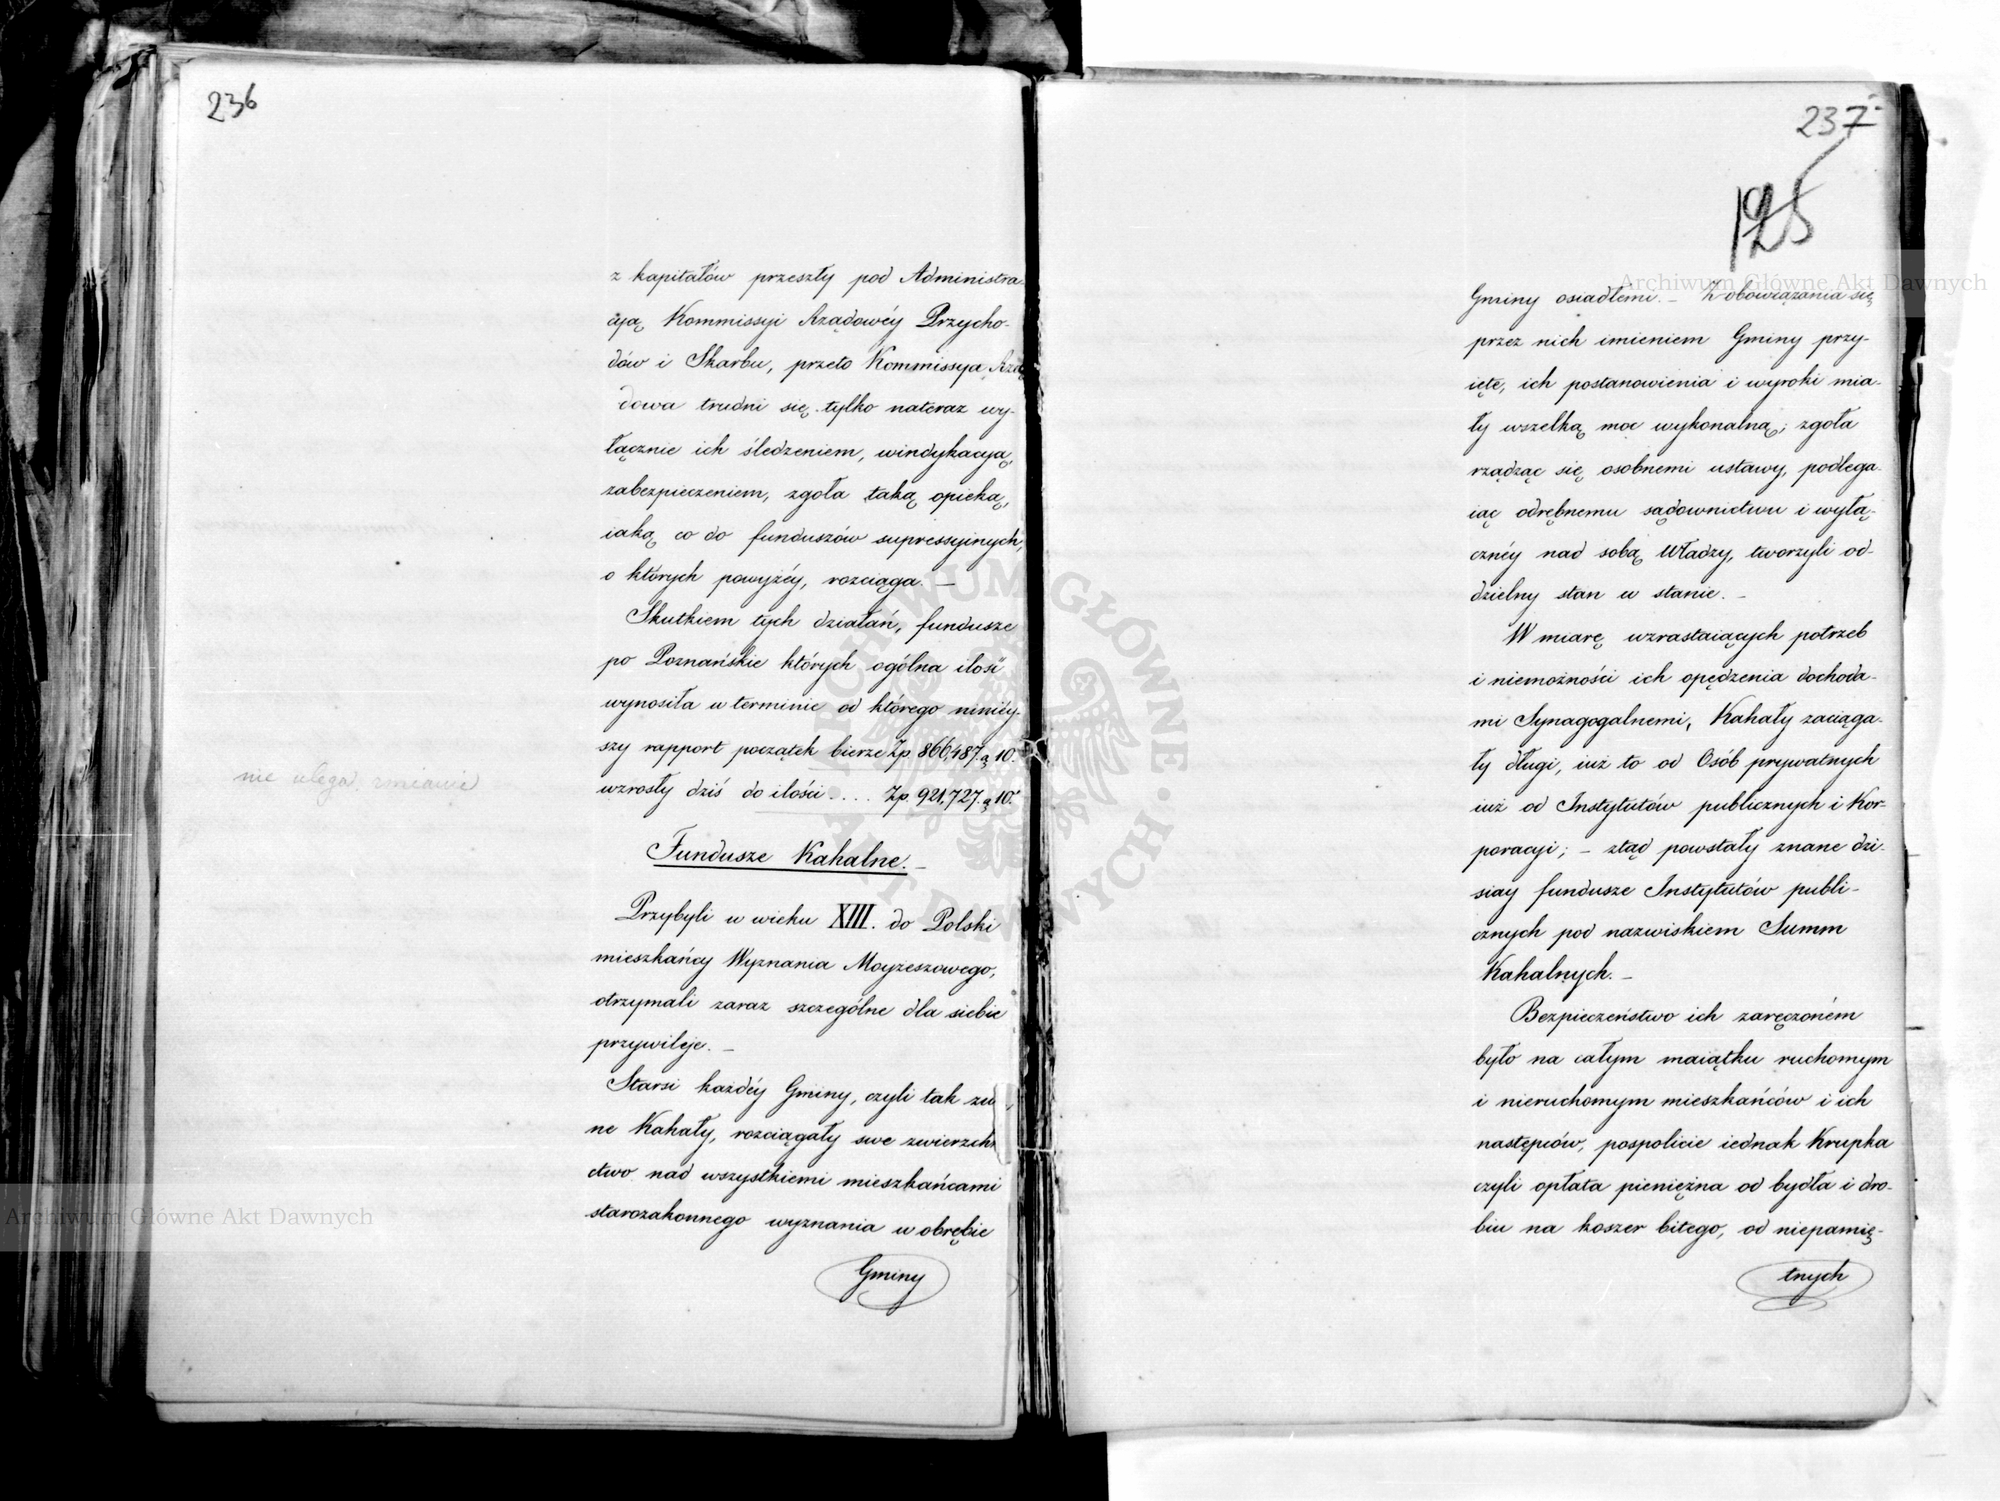 236
z kapitałów przeszły pod Administra
cyą Kommissyi Rządowéy Przycho-
dów i Skarbu, przeto Kommissya Rzą
dowa trudni się tylko nateraz wy-
łącznie ich śledzeniem, windykacyą,
zabezpieczeniem, zgoła taką opieką,
iaką co do funduszów supressyinych,
o których powyżéy, rozciąga. —
Skutkiem tych działań, fundusze
po Poznańskie których ogólna ilość
wynosiła w terminie od którego niniey-
szy rapport początek bierze Zp. 866,487. g 10.
wzrosły dziś do ilości .... Zp. 921,727. g 10.
nie ulega zmianie
Fundusze Kahalne. —
Przybyli w wieku XIII. do Polski
mieszkańcy Wyznania Moyżeszowego,
otrzymali zaraz szczególne dla siebie
przywileje. —
Starsi każdéy Gminy, czyli tak zwa
ne Kahały, rozciągały swe zwierzchni
ctwo nad wszystkiemi mieszkańcami
starozakonnego wyznania w obrębie
Gminy
237
125
Gminy osiadłemi. — Zobowiązania się
przez nich imieniem Gminy przy-
ięte, ich postanowienia i wyroki mia-
ły wszelką moc wykonalną; zgoła
rządząc się osobnemi ustawy, podlega-
iąc odrębnemu sądownictwu i wyłą-
cznéy nad sobą Władzy, tworzyli od-
dzielny stan w stanie. —
W miarę wzrastaiących potrzeb
i niemożności ich opędzenia dochoda-
mi Synagogalnemi, Kahały zaciąga-
ły długi, iuż to od Osób prywatnych
iuż od Instytutów publicznych i Kor-
poracyi; — ztąd powstały znane dzi-
siay fundusze Instytutów publi-
cznych pod nazwiskiem Summ
Kahalnych. —
Bezpieczeństwo ich zaręczoném
było na całym maiątku ruchomym
i nieruchomym mieszkańców i ich
następców, pospolicie iednak Krupka
czyli opłata pieniężna od bydła i dro-
biu na koszer bitego, od niepamię-
tnych
Archiwum Główne Akt Dawnych
Archiwum Główne Akt Dawnych
ARCHIWUM GŁÓWNE AKT DAWNYCH